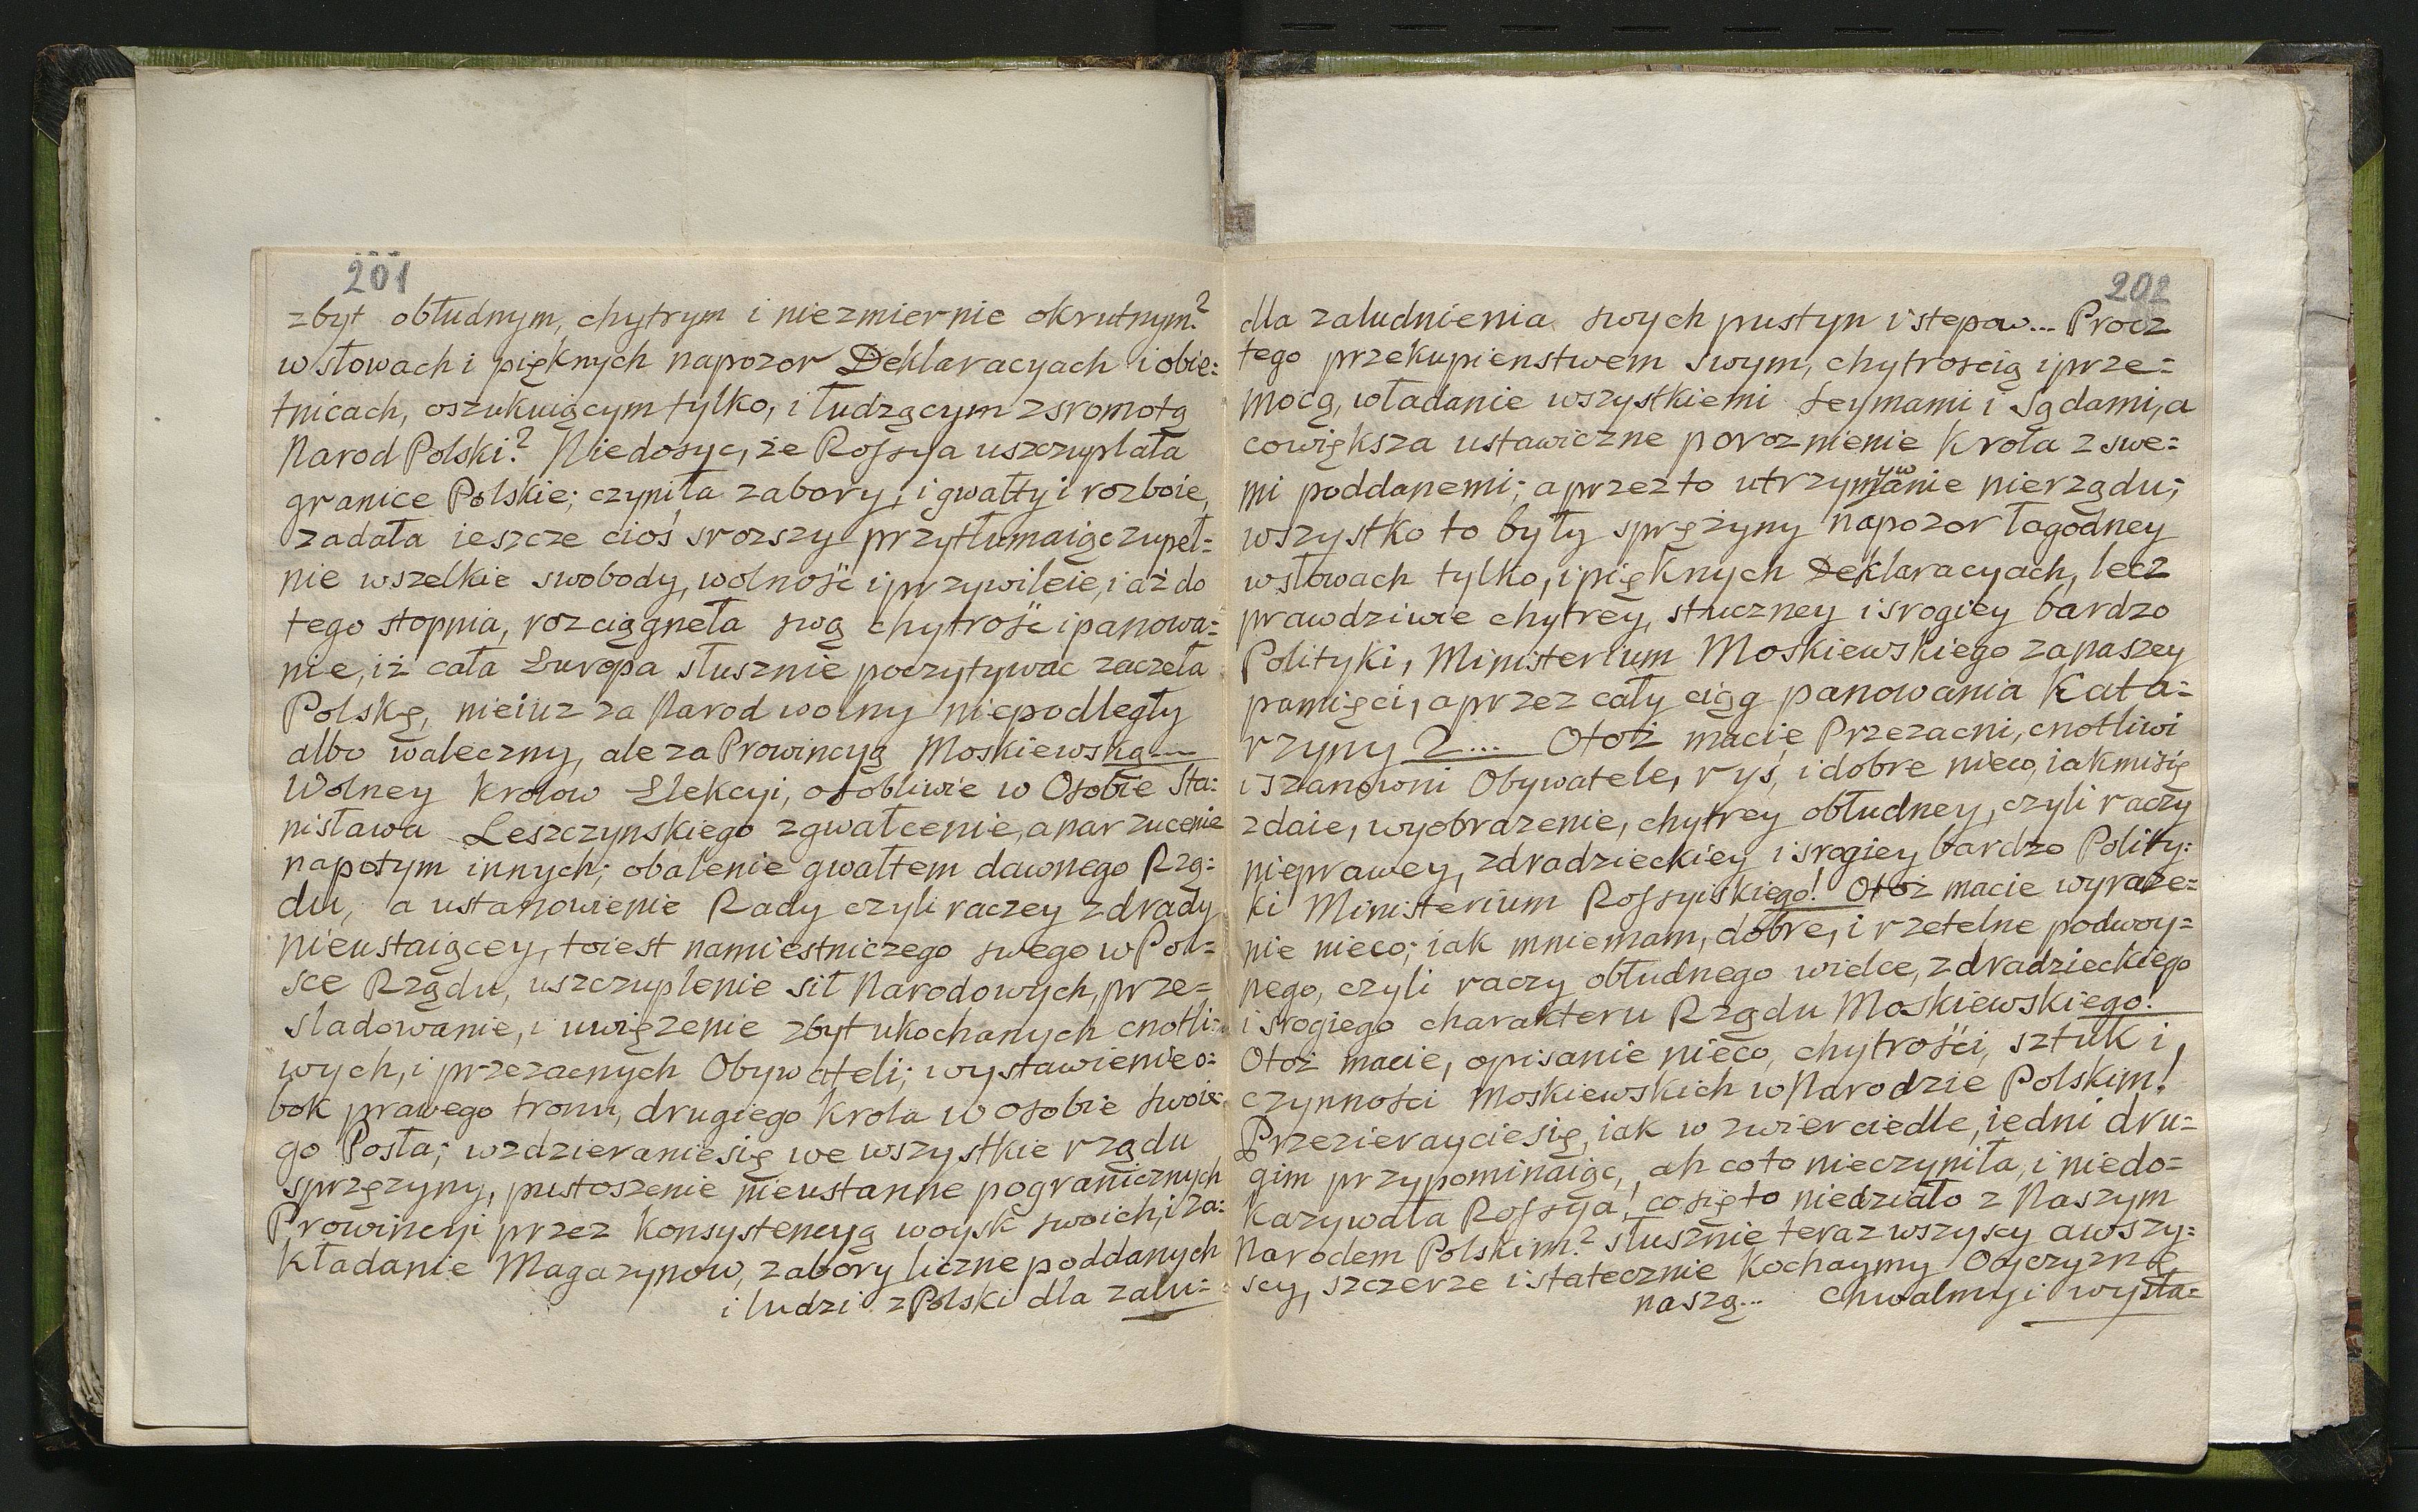 201
zbyt obłudnym, chytrym i niezmiernie okrutnym?
w słowach i pięknych napozor Deklaracyach i obie=
tnicach, oszukuiącym tylko, i łudzącym z sromotą
Narod Polski? Niedosyc, że Rossya uszczuplała
granice Polskie; czyniła zabory, i gwałty i rozboie,
zadała ieszcze cioś srozszy przytłumaiąc zupeł=
nie wszelkie swobody, wolność i przywileie, i aż do
tego stopnia, rozciągneła swą chytrość i panowa=
nie, iż cała Europa słusznie poczytywac zaczeła
Polskę, nieiuz za Narod wolny niepodległy
albo waleczny, ale za Prowincyą Moskiewską—
Wolney Krolow Elekcyi, osobliwie w Osobie Sta=
nisława Leszczynskiego zgwałcenie, a narzucenie
napotym innych; obalenie gwałtem dawnego Rzą=
du, a ustanowienie Rady czyli raczey zdrady
nieustaiącey, toiest namiestniczego swego w Pol=
sce Rządu, uszczuplenie sił Narodowych, prze=
sladowanie, i uwięzenie zbyt ukochanych cnotli=
wych, i przezacnych Obywateli; wystawienie o=
bok prawego tronu, drugiego Krola w osobie swoie=
go Posła; wzdzieranie się we wszystkie rządu
sprzęzyny, pustoszenie nieustanne pogranicznych
Prowincyi przez Konsystencyą woysk swoich, i za=
kładanie Magazynow, zabory liczne poddanych
i ludzi z Polski dla zalu=
202
dla zaludnienia swych pustyn i stepow... Procz
tego przekupienstwem swym, chytroscią i prze=
mocą, władanie wszystkiemi Seymami i Sądami, a
cowiększa ustawiczne poroznienie Krola z swe=
mi poddanemi; a przez to utrzymywanie nierządu;
wszystko to były sprężyny napozor łagodney
w słowach tylko, i pięknych Deklaracyach, lecz
prawdziwie chytrey, stuczney i srogiey bardzo
Polityki, Ministerium Moskiewskiego za naszey
pamięci, a przez cały ciąg panowania Kata=
rzyny 2... Otoż macie Przezacni, cnotliwi
i szanowni Obywatele, ryś, i dobre nieco, iak mi się
zdaie, wyobrazenie, chytrey obłudney, czyli raczy
nieprawey, zdradzieckiey i srogiey bardzo Polity=
ki Ministerium Rossyiskiego! Otoż macie wyraze=
nie nieco; iak mniemam, dobre, i rzetelne podwoy=
nego, czyli raczy obłudnego wielce, zdradzieckiego
i srogiego charakteru Rządu Moskiewskiego!
Otoż macie, opisanie nieco, chytrości, sztuk i
czynności Moskiewskich w Narodzie Polskim!
Przezieraycie się, iak w zwierciedle, iedni dru=
gim przypominaiąc, ah co to nieczyniła, i niedo=
kazywała Rossya! co się to niedziało z Naszym
Narodem Polskim? słusznie teraz wszyscy a wszy=
scy, szczerze i statecznie Kochaymy Oyczyznę
naszą... Chwalmy i wysła=